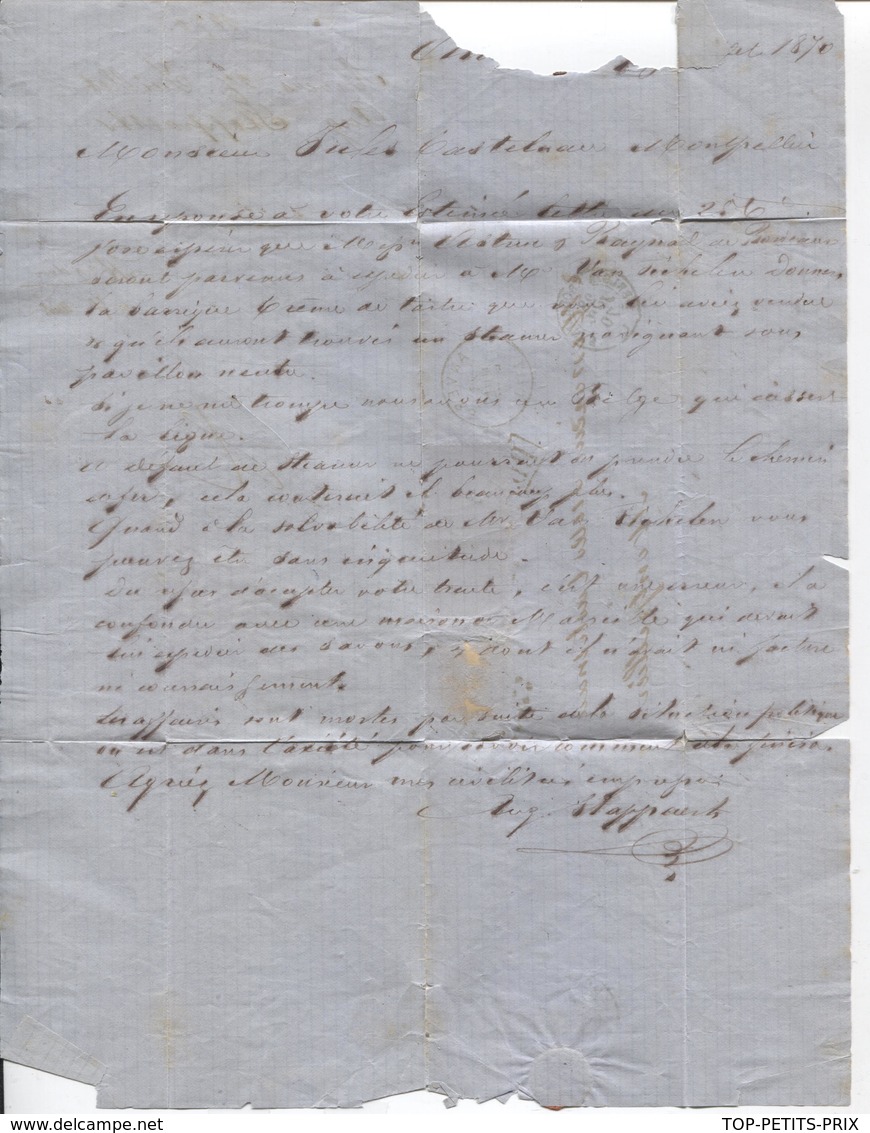 1870
Monsieur Jules Castelnau Montpellier
En reponse à votre Estimée lettre du 25
j'ose espérer que Mess. & Raynal de
seront parvenus à expedier à Mr Van
la barrique Crème de tartre que vous lui aviez vendue
& qu'ils auront trouvés un steamer navigant sous
pavillon neutre.
Si je ne me trompe nous avons un Belge qui dessert
la ligne.
A défaut de steamer ne pourrait on prendre le chemin
de fer, cela couterait il beaucoup plus.
Quand à la solvabilité de Mr Van vous
pouvez être sans inquietude.
Du refus d'accepter votre traite, c'est une erreur, il a
confondu avec une maison de Marseille qui devait
lui expedier des savons, & dont il n'avait ni facture
ni connaissement.
Les affaires sont mortes par suite de la situation politique
on est dans l'anxiété pour savoir comment cela finira.
Agréez Monsieur mes civilités empressées
Aug. Stappaerts
TOP-PETITS-PRIX